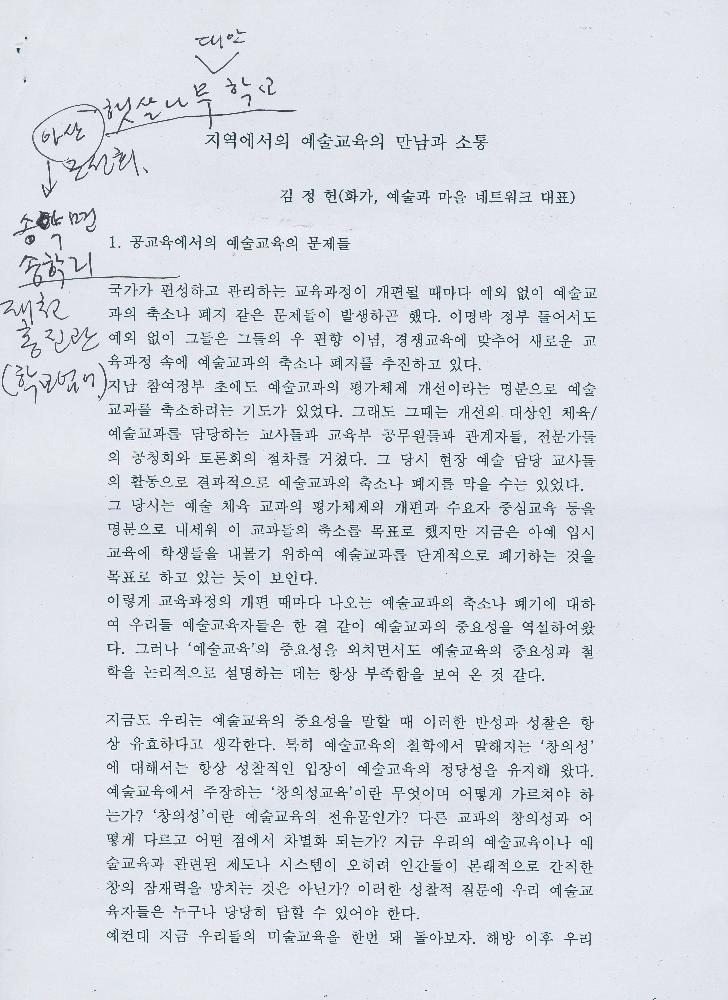 대안
햇살나무 학교
아산
송악면
송학리
홍진관
지역에서의 예술교육의 만남과 소통
김 정 헌(화가, 예술과 마을 네트워크 대표)
1. 공교육에서의 예술교육의 문제들
국가가 편성하고 관리하는 교육과정이 개편될 때마다 예외 없이 예술교
과의 축소나 폐지 같은 문제들이 발생하곤 했다. 이명박 정부 들어서도
예외 없이 그들은 그들의 우 편향 이념, 경쟁교육에 맞추어 새로운 교
육과정 속에 예술교과의 축소나 폐지를 추진하고 있다.
지난 참여정부 초에도 예술교과의 평가체제 개선이라는 명분으로 예술
교과를 축소하려는 기도가 있었다. 그래도 그때는 개선의 대상인 체육/
예술교과를 담당하는 교사들과 교육부 공무원들과 관계자들, 전문가들
의 공청회와 토론회의 절차를 거쳤다. 그 당시 현장 예술 담당 교사들
의 활동으로 결과적으로 예술교과의 축소나 폐지를 막을 수는 있었다.
그 당시는 예술 체육 교과의 평가체제의 개편과 수요자 중심교육 등을
명분으로 내세워 이 교과들의 축소를 목표로 했지만 지금은 아예 입시
교육에 학생들을 내몰기 위하여 예술교과를 단계적으로 폐기하는 것을
목표로 하고 있는 듯이 보인다.
이렇게 교육과정의 개편 때마다 나오는 예술교과의 축소나 폐기에 대하
여 우리들 예술교육자들은 한 결 같이 예술교과의 중요성을 역설하여왔
다. 그러나 ‘예술교육’의 중요성을 외치면서도 예술교육의 중요성과 철
학을 논리적으로 설명하는 데는 항상 부족함을 보여 온 것 같다.
지금도 우리는 예술교육의 중요성을 말할 때 이러한 반성과 성찰은 항
상 유효하다고 생각한다. 특히 예술교육의 철학에서 말해지는 ‘창의성’
에 대해서는 항상 성찰적인 입장이 예술교육의 정당성을 유지해 왔다.
예술교육에서 주장하는 ‘창의성교육’이란 무엇이며 어떻게 가르쳐야 하
는가? ‘창의성’이란 예술교육의 전유물인가? 다른 교과의 창의성과 어
떻게 다르고 어떤 점에서 차별화 되는가? 지금 우리의 예술교육이나 예
술교육과 관련된 제도나 시스템이 오히려 인간들이 본래적으로 간직한
창의 잠재력을 망치는 것은 아닌가? 이러한 성찰적 질문에 우리 예술교
육자들은 누구나 당당히 답할 수 있어야 한다.
예컨대 지금 우리들의 미술교육을 한번 돼 돌아보자. 해방 이후 우리